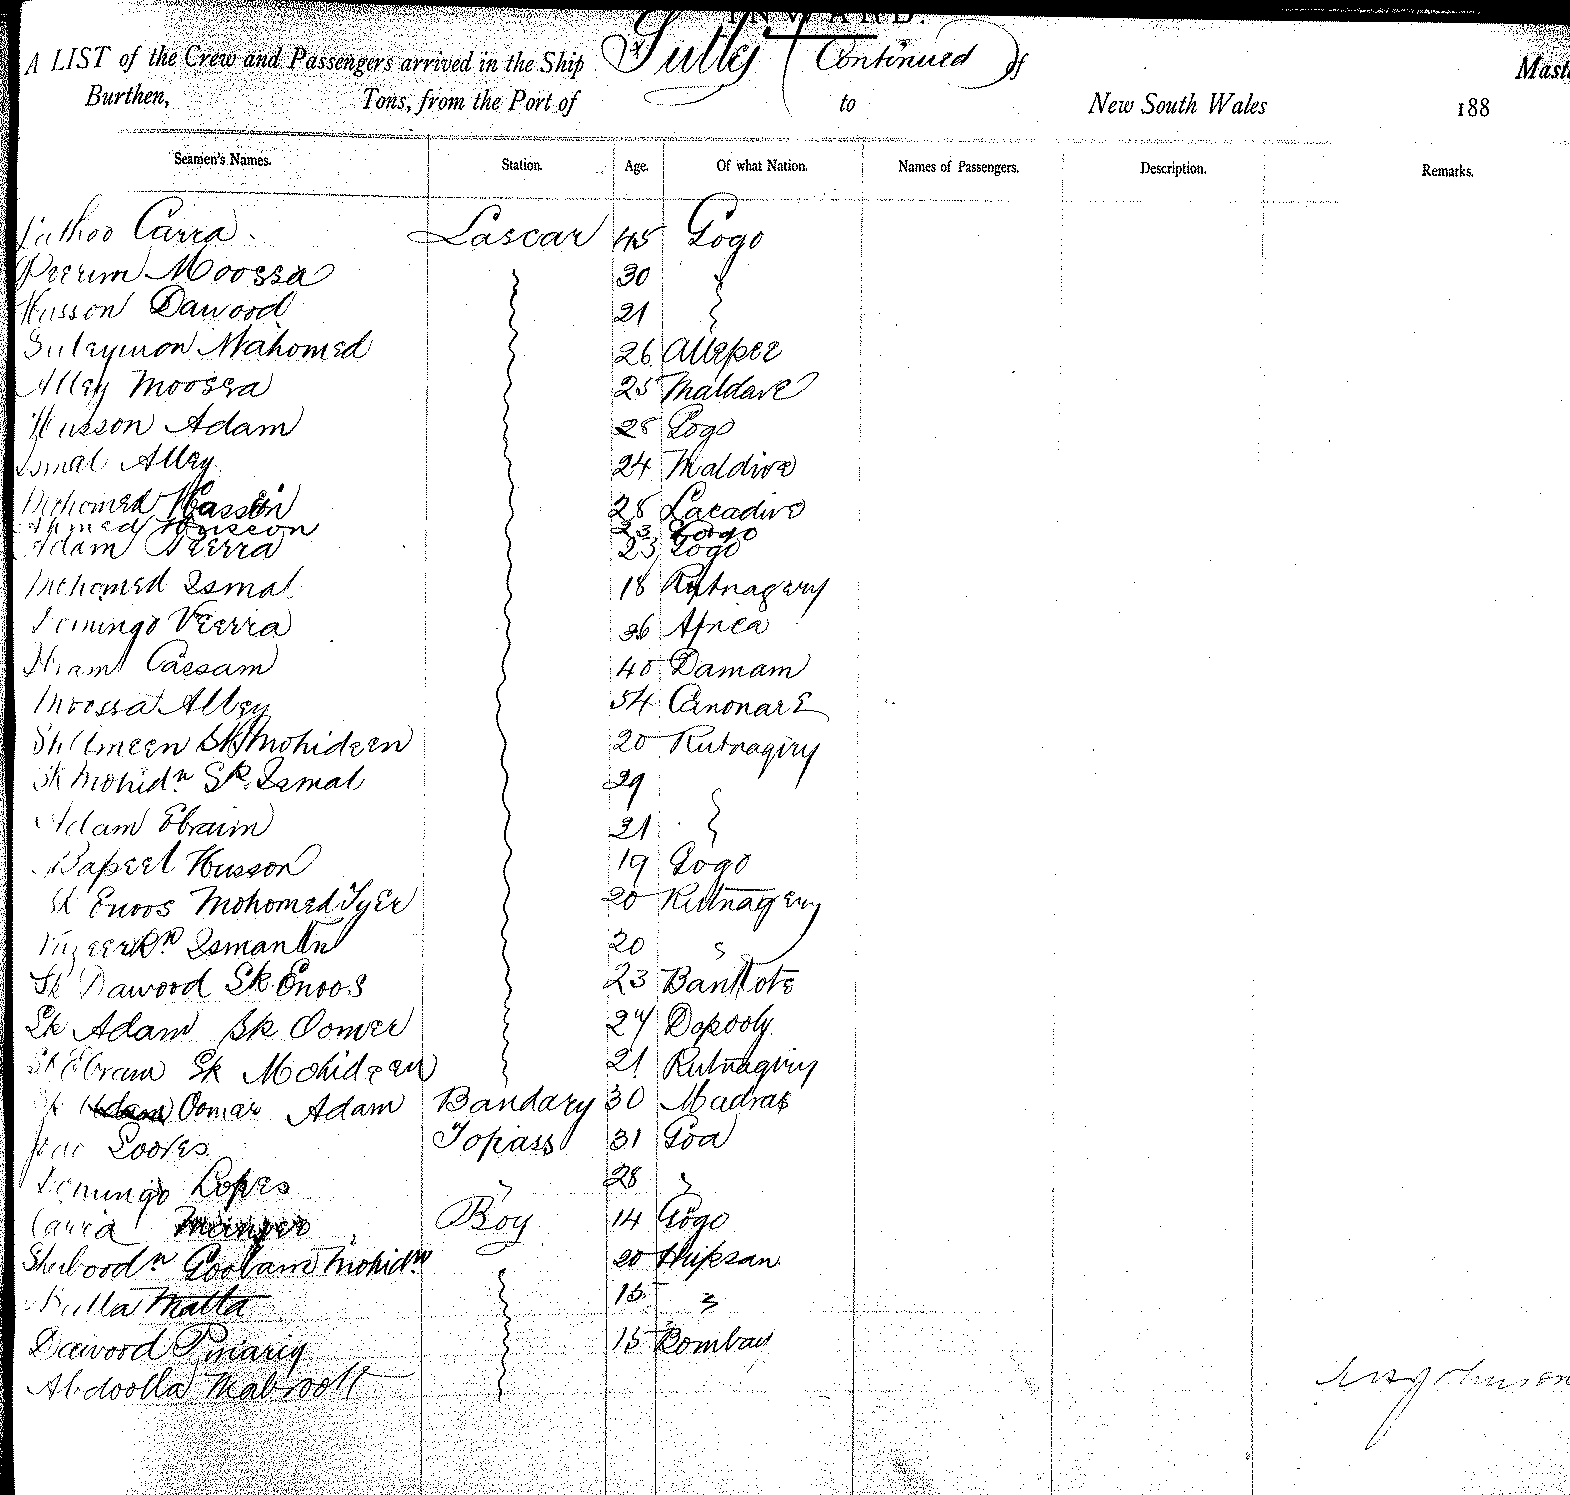 INWARD.
A LIST of the Crew and Passengers arrived in the Ship Gully (Continued) of Mast
Burthen, Tons, from the Port of to New South Wales 188
Seamen's Names. Station. Age. Of what Nation. Names of Passengers. Description. Remarks.
Carra Lascar 45 Gogo
Peerum Moossa 30 "
Husson Dawood 21 "
Suleymon Mahomed 26 Allepee
Alley Moossa 25 Maldave
Husson Adam 28 Gogo
Ismal Alley 24 Maldive
Mohomed Hassen 28 Lacadive
Ahmed Husson 23 Gogo
Adam Peerra 23 Gogo
Mohomed Ismal 18 Rutnagery
Domingo Veerra 36 Africa
Cassam 40 Damam
Moossa Alley 54 Canonare
Sk Mohideen 20 Rutnagiry
Sk Mohidn Sk. Ismal 29
Adam Ebraim 21 "
Husson 19 Gogo
Sk Enoos Mohomed 20 Rutnagery
20 "
Sk Dawood Sk Enoos 23 Bankote
Sk Adam Sk Oomer 24 Dapooly
Sk Ebram Sk Mohideen 21 Rutnagiry
Sk Adam Oomar Adam Bandary 30 Madras
Topass 31 Goa
Domingo Lopes " 28 "
Carria Boy 14 Gogo
Goolam Mohidn " 20 Hupsan
15 "
Dawood 15 Bombay
Abdoolla Mabrook